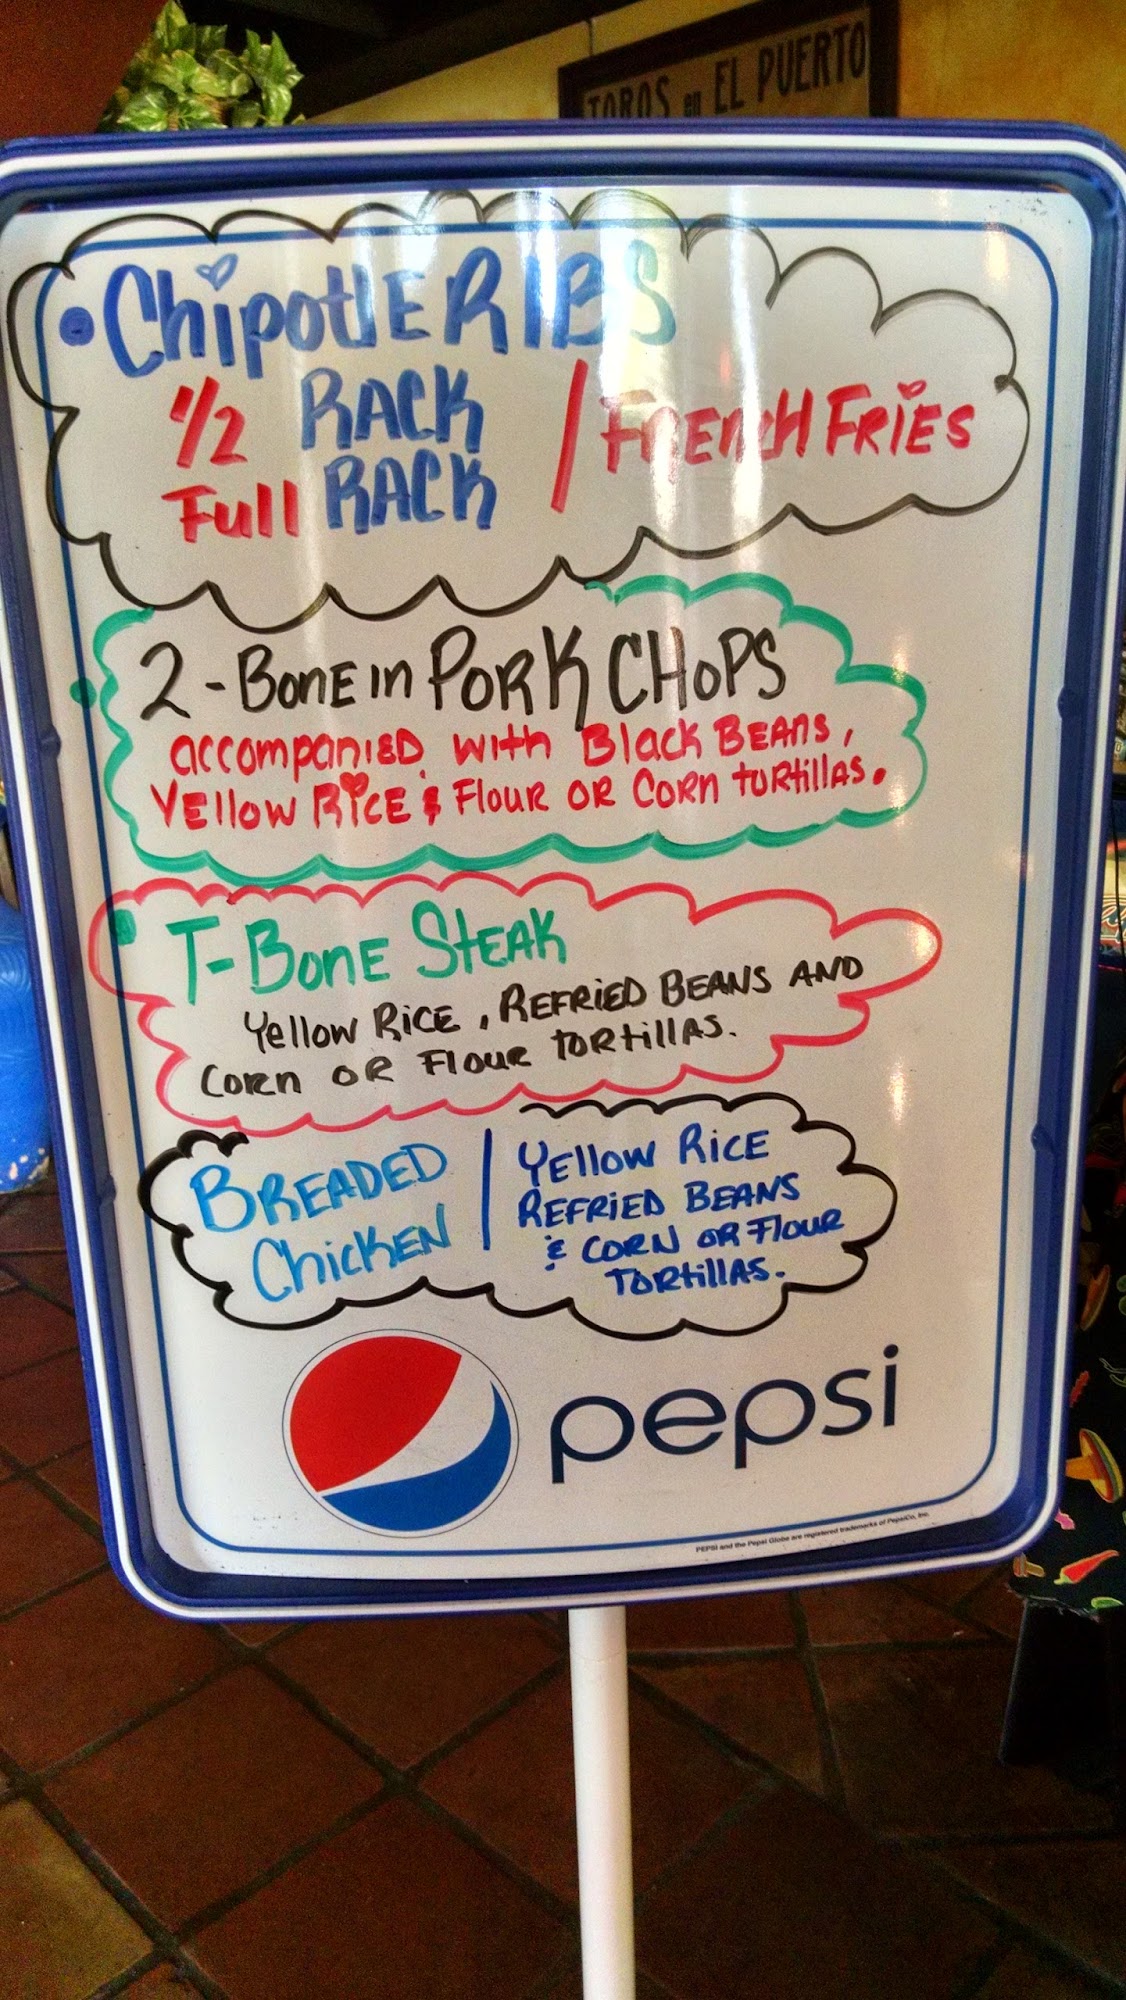 TOROS en EL PUERTO
• ChipotlE RIBS
1/2 RACK / FrENcH FRiES
Full RACK
2 - BONE iN PORK CHoPS
accompaniED with Black BEANS,
YEllow RiCE & Flour OR CORN tortillas.
T-BONE StEAK
Yellow RiCE, REFRiED BEANS AND
CORN OR Flour tortillas.
BREADED
ChicKEN
YEllow RicE
REFRiED BEANS
& CORN OR Flour
TORtillas.
pepsi
PEPSI and the Pepsi Globe are registered trademarks of PepsiCo, Inc.